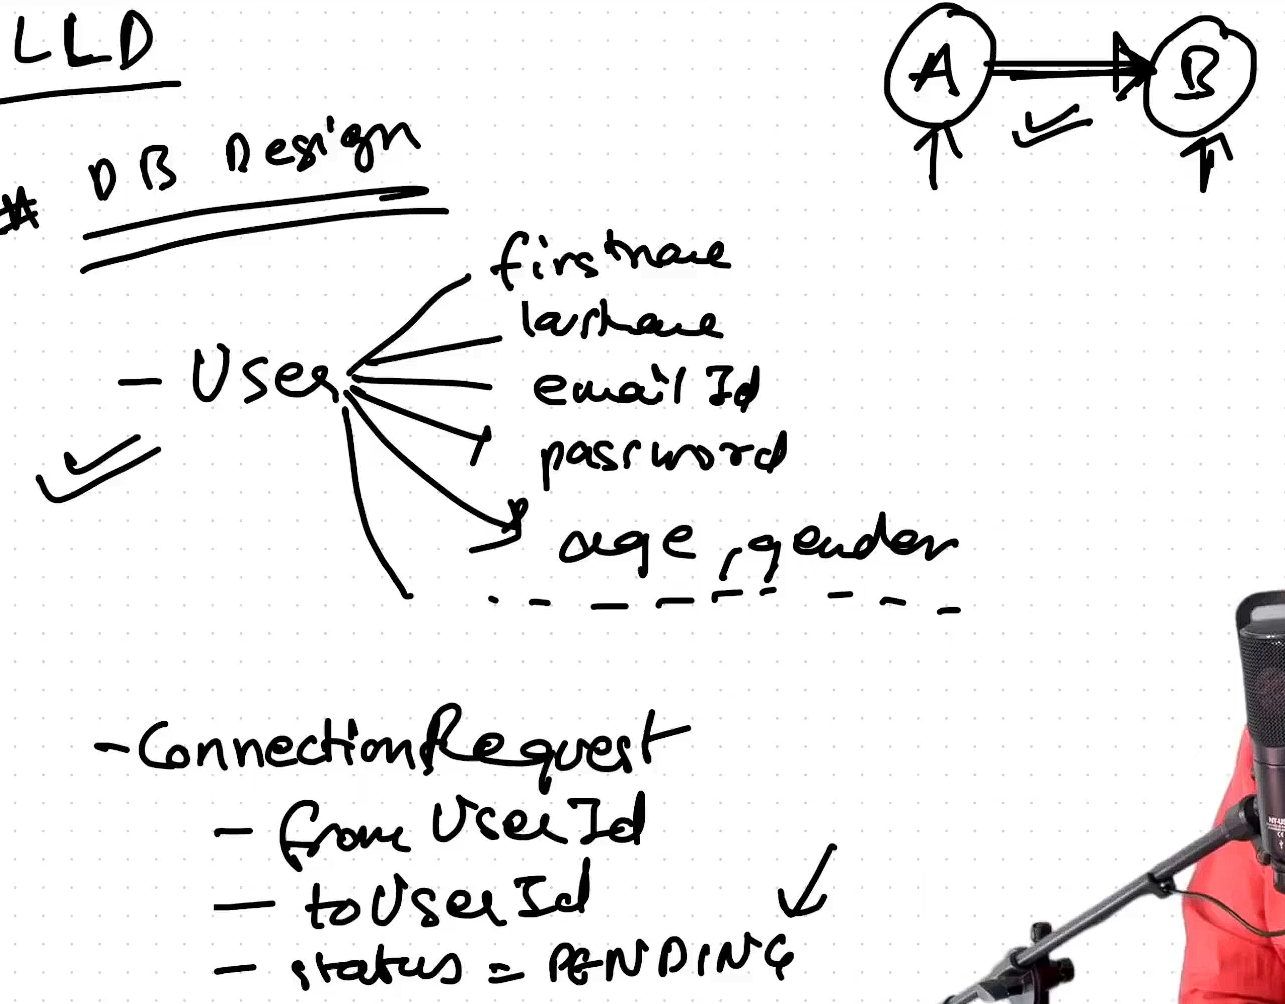 LLD
# DB Design
A
B
- User
firstname
lastname
emailId
password
age, gender
- ConnectionRequest
- fromUserId
- toUserId
- status = PENDING